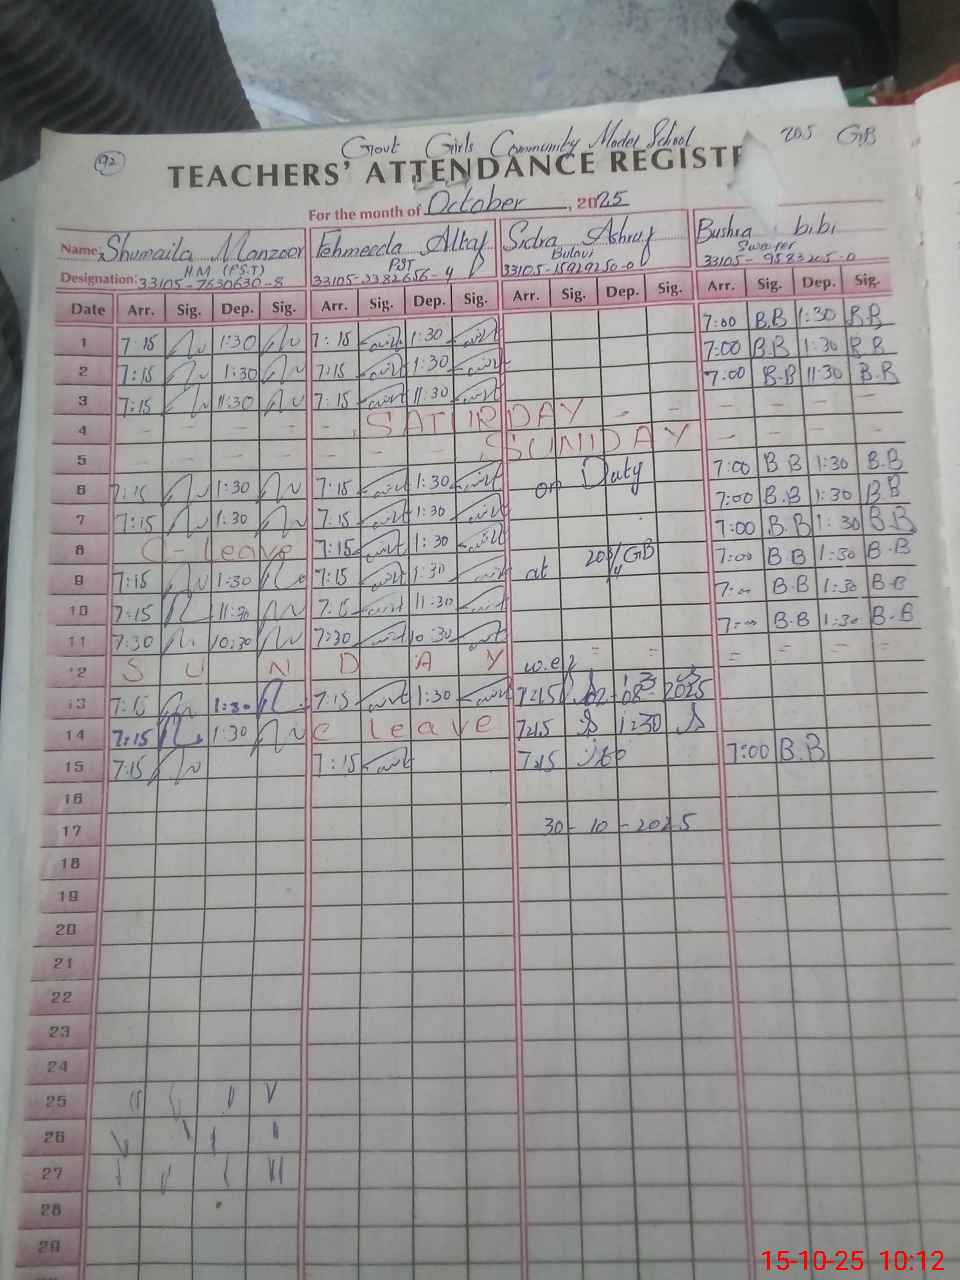 92 Govt Girls Community Model School 205 GB
TEACHERS' ATTENDANCE REGISTE
For the month of October, 2025
Name: Shumaila Manzoor Fehmeeda Altaf Sidra Ashraf Bushra bibi
Designation: H.M (P.S.T) PST Swaper
33105-7630630-8 33105-3382656-4 33105-15929250-0 33105-9583205-0
Date Arr. Sig. Dep. Sig. Arr. Sig. Dep. Sig. Arr. Sig. Dep. Sig. Arr. Sig. Dep. Sig.
1 7:15 1:30 7:15 1:30 7:00 B.B 1:30 B.B
2 7:15 1:30 7:15 1:30 7:00 B.B 1:30 B.B
3 7:15 11:30 7:15 11:30 7:00 B.B 11:30 B.B
4 - - - - - SATURDAY - - - - - -
5 - - - - - - - SUNDAY - - - -
6 7:15 1:30 7:15 1:30 on Duty 7:00 B B 1:30 B.B
7 7:15 1:30 7:15 1:30 7:00 B.B 1:30 B.B
8 C-Leave 7:15 1:30 7:00 B.B 1:30 B.B
9 7:15 1:30 7:15 1:30 at GB 7:00 B B 1:30 B-B
10 7:15 11:30 7:15 11:30 7:00 B.B 1:30 B-B
11 7:30 10:30 7:30 10:30 7:00 B.B 1:30 B-B
12 S U N D A Y w.e.f = = = = = =
13 7:15 1:30 7:15 1:30 7:15 02-08-2025
14 7:15 1:30 C leave 7:15 1:30
15 7:15 7:15 7:15 to 7:00 B.B
16
17 30-10-2025
18
19
20
21
22
23
24
25
26
27
28
29
15-10-25 10:12